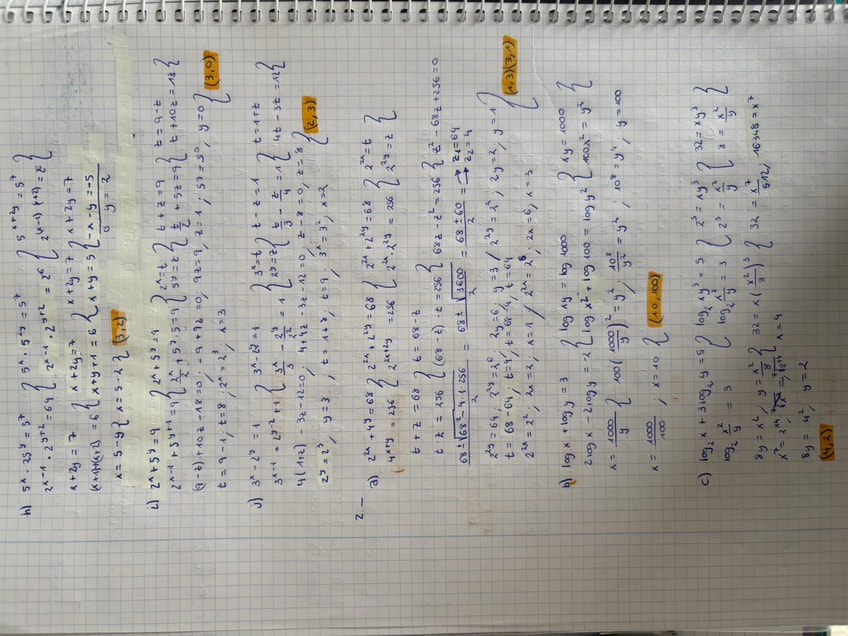 h) 5^x · 25^y = 5^7 { 5^x · 5^2y = 5^7 { 5^x+2y = 5^7
2^x-1 · 2^y+2 = 64 { 2^x-1 · 2^y+2 = 2^6 { 2^(x-1)+(y+2) = 2^6
x+2y = 7 { x+2y = 7 { x+2y = 7 { x+2y = 7
(x-1)+(y+2) = 6 { x+y+1 = 6 { x+y = 5 { -x-y = -5
0 y = 2
x = 5-y { x = 5-2 { (3,2)
i) 2^x + 5^y = 9 { 2^x + 5^y = 9 { 2^x = t { t + z = 9 { t = 9-z
2^x-1 + 5^y+1 = 9 { 2^x/2 + 5^y · 5 = 9 { 5^y = z { t/2 + 5z = 9 { t + 10z = 18 {
(9-z) + 10z - 18 = 0, -9 + 9z = 0, 9z = 9, z = 1, 5^y = 5^0, y = 0
t = 9-1, t = 8, 2^x = 2^3, x = 3 { (3,0)
j) 3^x - 2^y = 1 { 3^x - 2^y = 1 { 3^x = t { t - z = 1 { t = 1+z
3^x-1 = 2^y-2 + 1 { 3^x/3 - 2^y/2^2 = 1 { 2^y = z { t/3 - z/4 = 1 { 4t - 3z = 12 {
4(1+z) - 3z - 12 = 0, 4+4z - 3z - 12 = 0, z - 8 = 0, z = 8
2^y = 2^3, y = 3, t = 1+8, t = 9, 3^x = 3^2, x = 2 { (2,3)
2.-
a) 2^2x + 4^y = 68 { 2^2x + 2^2y = 68 { 2^2x + 2^2y = 68 { 2^2x = t
4^x+y = 256 { 2^2x+2y = 256 { 2^2x · 2^2y = 256 { 2^2y = z {
t + z = 68 { t = 68-z
t z = 256 { (68-z) · z = 256 { 68z - z^2 = 256 { z^2 - 68z + 256 = 0
68 ± √68^2 - 4·1·256 / 2 = 68 ± √3600 / 2 = 68 ± 60 / 2 = z1 = 64
z2 = 4
2^2y = 64, 2^2y = 2^6, 2y = 6, y = 3 / 2^2y = 2^2, 2y = 2, y = 1
t = 68-64, t = 4, t = 68-4, t = 64
2^2x = 2^2, 2x = 2, x = 1 / 2^2x = 2^6, 2x = 6, x = 3 { (1,3)(3,1)
b) log x + log y = 3 { log xy = log 1000 { xy = 1000
2 log x - 2 log y = -2 { log x^2 + log 100 = log y^2 { 100x^2 = y^2 {
x = 1000/y { 100(1000/y)^2 = y^2, 10^8/y^2 = y^2, 10^8 = y^4, y = 100
x = 1000/100, x = 10 { (10,100)
c) log2 x + 3 log2 y = 5 { log2 xy^3 = 5 { 2^5 = xy^3 { 32 = xy^3
log2 x^2/y = 3 { log2 x^2/y = 3 { 2^3 = x^2/y { 8 = x^2/y
8y = x^2, y = x^2/8 { 32 = x(x^2/8)^3 { 32 = x^7/512, 16348 = x^7
x^7 = 2^14, x = 4
8y = 4^2, y = 2
(4,2)